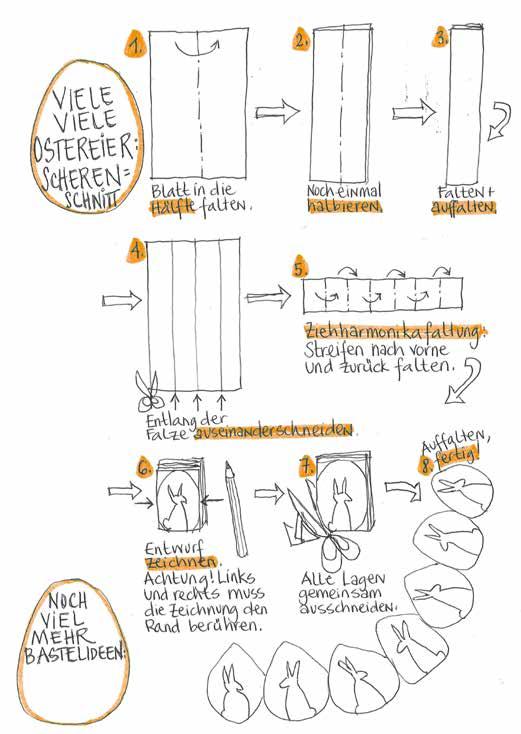 VIELE
VIELE
OSTEREIER:
SCHEREN=
SCHNITT
1.
Blatt in die
Hälfte falten.
2.
Noch einmal
halbieren.
3.
Falten +
auffalten.
4.
Entlang der
Falze auseinanderschneiden.
5.
Ziehharmonikafaltung:
Streifen nach vorne
und zurück falten.
6.
Entwurf
zeichnen.
Achtung! Links
und rechts muss
die Zeichnung den
Rand berühren.
7.
Alle Lagen
gemeinsam
ausschneiden.
Auffalten,
8. fertig!
NOCH
VIEL
MEHR
BASTELIDEEN: